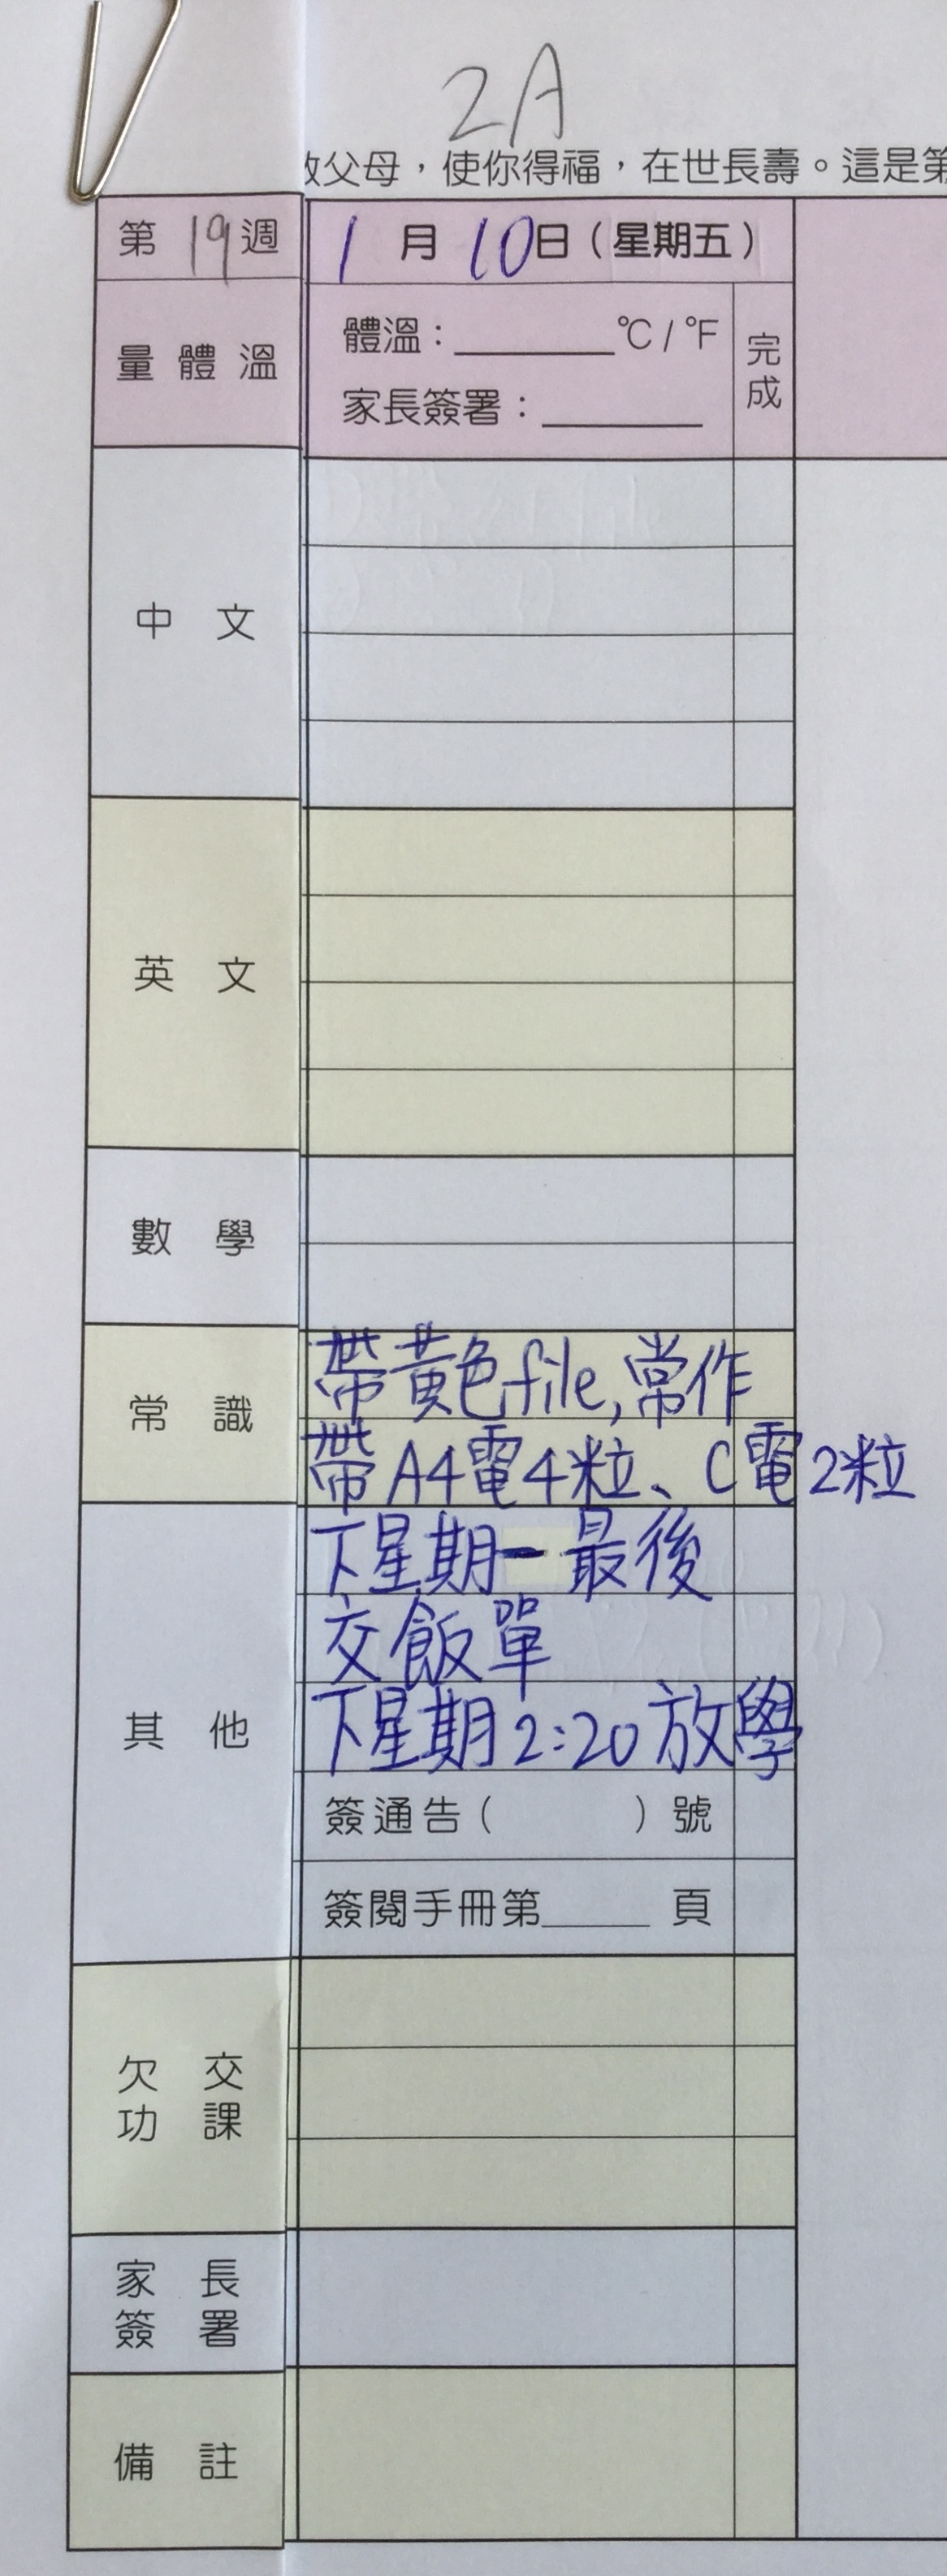 2A
父母，使你得福，在世長壽。這是第
第 19 週
1 月 10 日（星期五）
量體溫
體溫：______℃ / ℉
家長簽署：______
完成
中文
英文
數學
常識
帶黃色file,常作
帶A4電4粒、C電2粒
其他
下星期一最後
交飯單
下星期2:20放學
簽通告（ ）號
簽閱手冊第____頁
欠交
功課
家長
簽署
備註